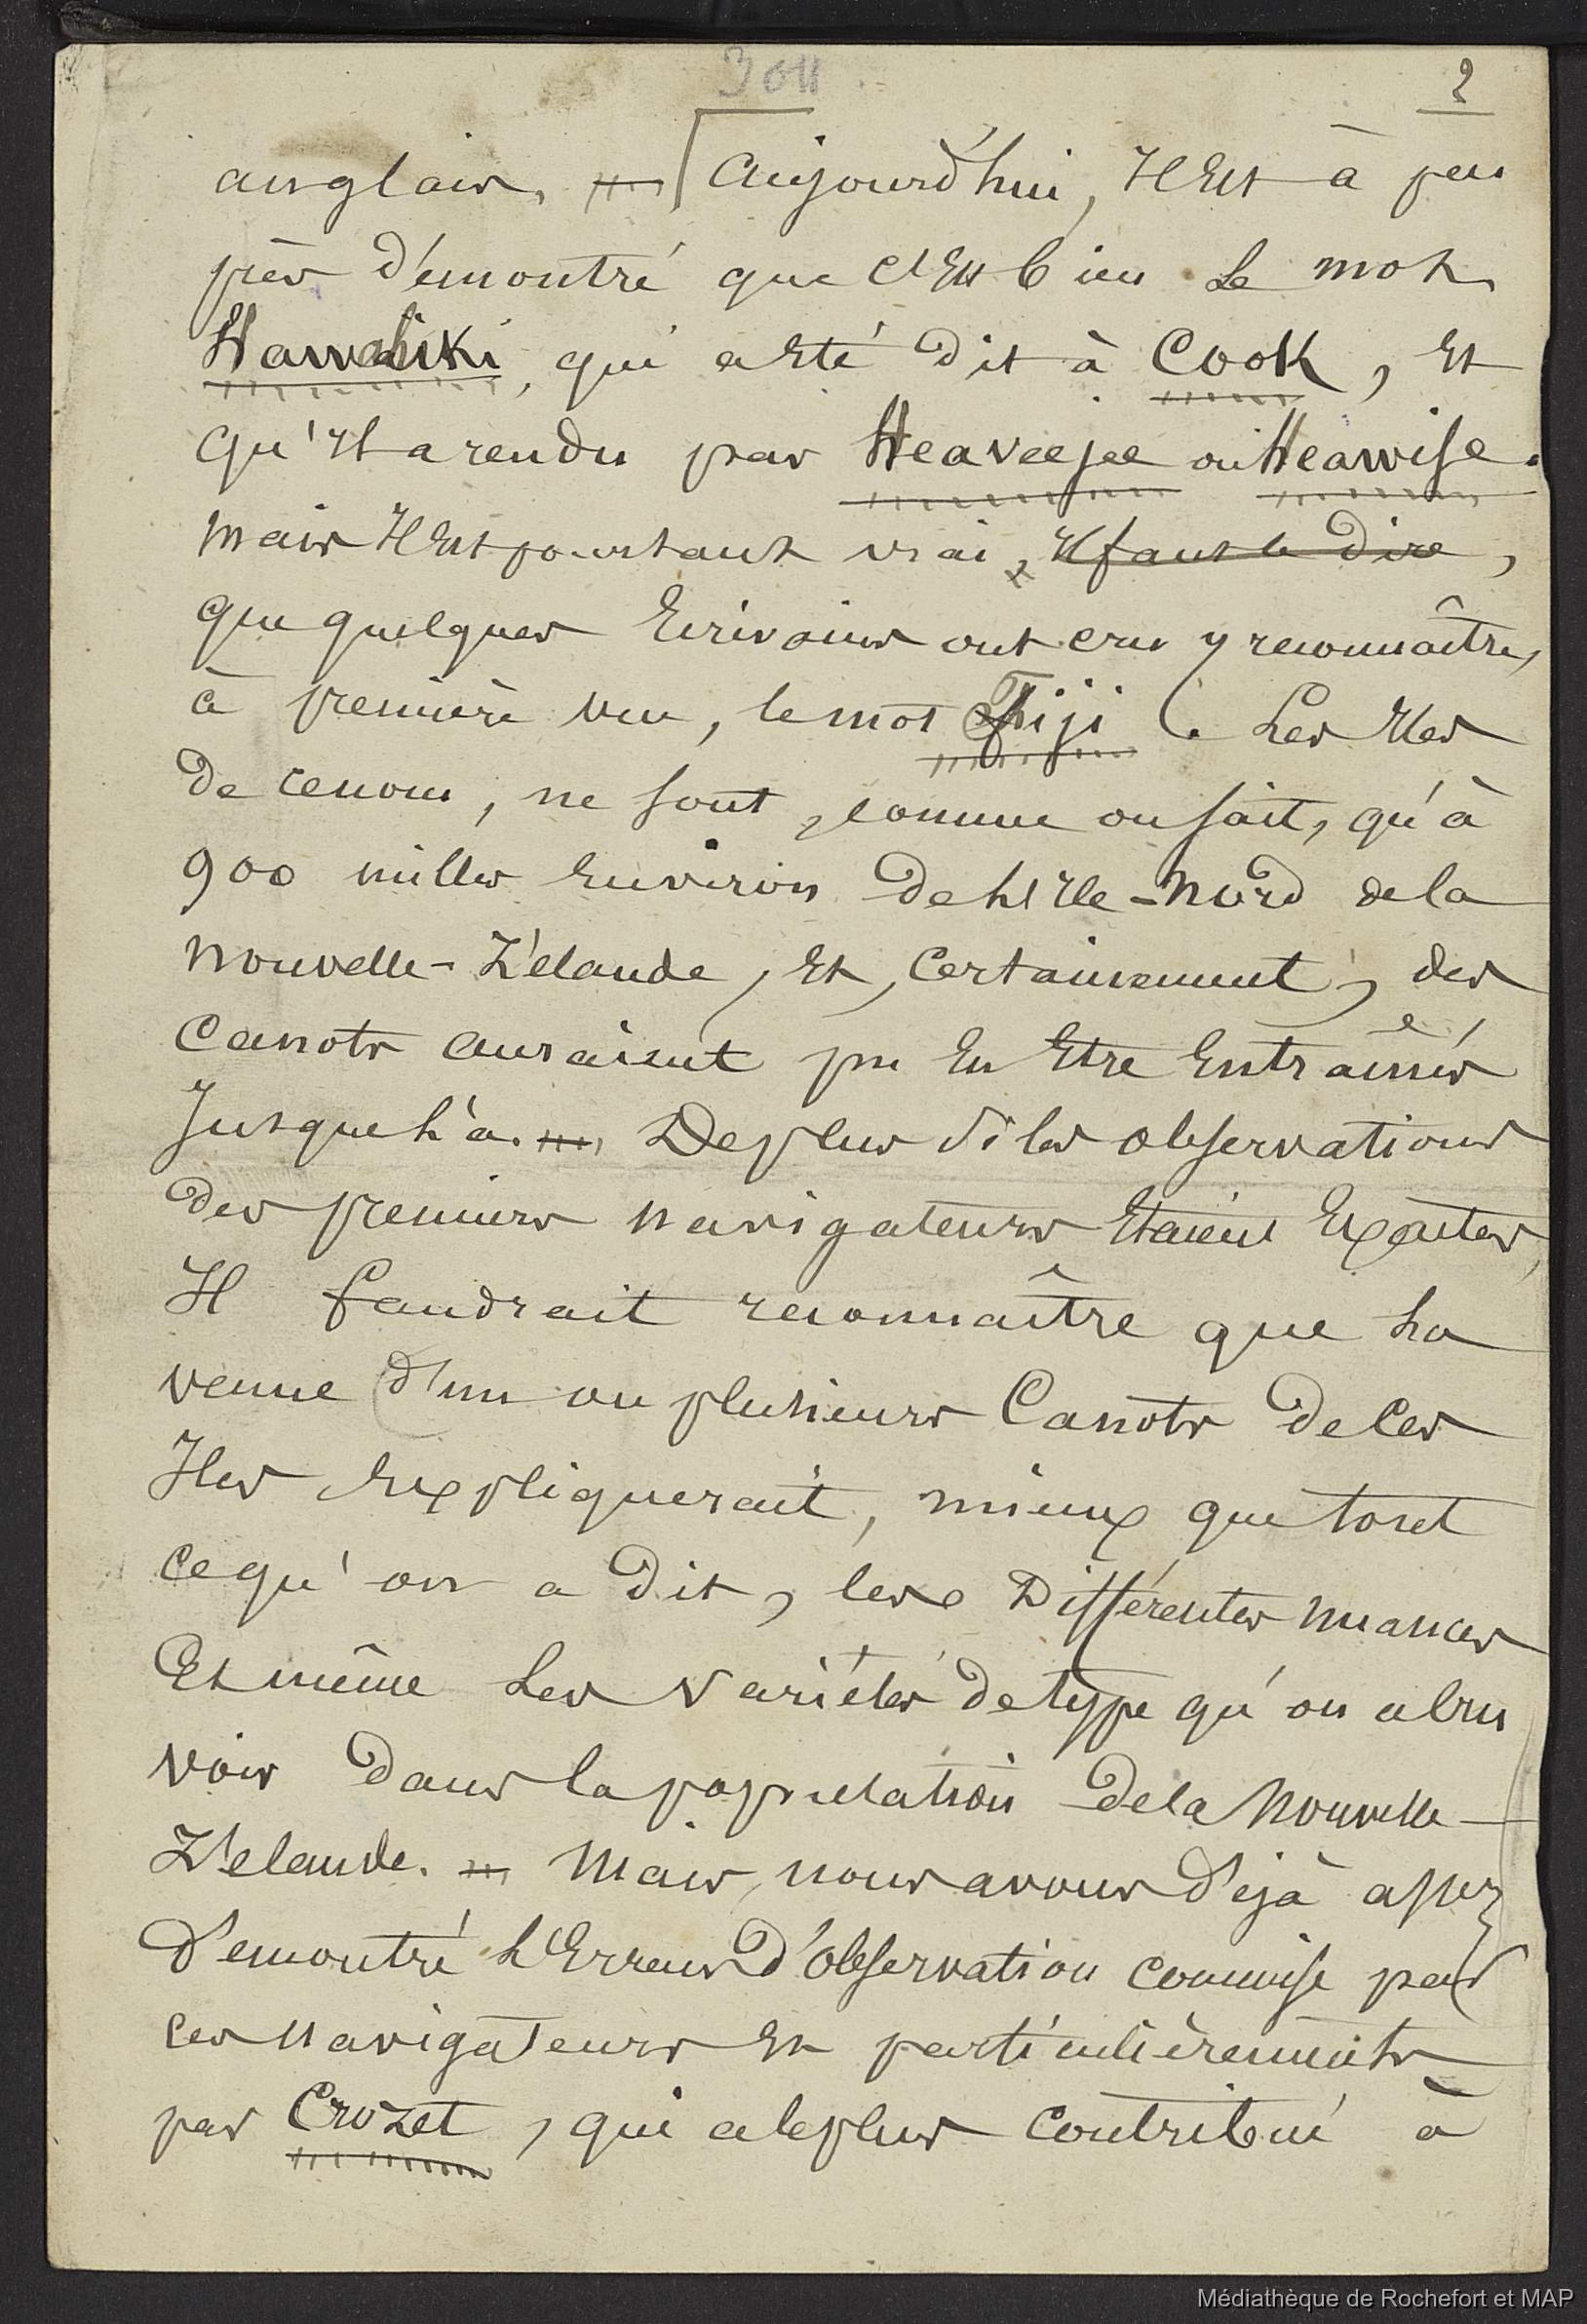 3011
2
anglais. — Aujourd'hui, il est à peu
près démontré que c'est bien le mot
Hawahiki, qui a été dit à Cook, et
qu'il a rendu par Heaveejee ou Heawise.
mais il est pourtant vrai, il faut le dire,
que quelques Ecrivains ont cru y reconnaître,
à première vue, le mot Fiji. Les Iles
de ce nom, ne sont, comme on sait, qu'à
900 milles environ de l'Ile-Nord de la
Nouvelle-Zélande, et, certainement, des
Canots auraient pu en être entraînés
jusque là. — De plus si les observations
des premiers navigateurs étaient exactes,
Il faudrait reconnaître que la
venue d'un ou plusieurs Canots de ces
Iles expliquerait, mieux que tout
ce qu'on a dit, les différentes nuances
Et même les variétés de type qu'on a cru
voir dans la population de la Nouvelle-
Zélande. — Mais, nous avons déjà assez
démontré l'Erreur d'observation commise par
ces navigateurs et particulièrement
par Crozet, qui a le plus contribué à
Médiathèque de Rochefort et MAP